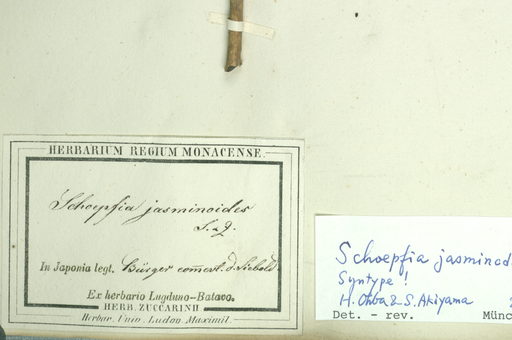 HERBARIUM REGIUM MONACENSE.
Schoepfia jasminoides
S. & Z.
In Japonia legt. Bürger com̅. cl. d. Siebold
Ex herbario Lugduno-Batavo.
HERB. ZUCCARINII
Herbar. Univ. Ludov. Maximil.
Schoepfia jasminod
Syntype !
H. Ohba & S. Akiyama
Det. - rev. Münc